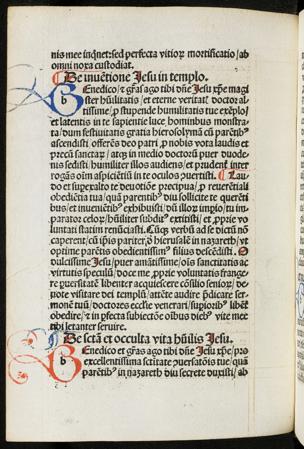 nis mee inq̃net: sed perfecta vitioꝝ mortificatio / ab
omni noxa custodiat.
¶ De inuẽtione Jesu in templo.
Benedico / ⁊ gr̃as ago tibi dñe Jesu xp̃e magi
ster hũilitatis / et eterne veritatꝭ doctor al
tissime / ꝓ stupende humilitatis tue exẽplo /
et latentis in te sapientie luce hominibus monstra
ta / dum festiuitatis gratia hierosolymã cũ parẽtibꝰ
ascendisti offerẽs deo patri ꝓ nobis vota laudis et
precũ sanctaꝝ / atqꝫ in medio doctoꝝ puer duode-
nis sedisti humiliter illos audiens / et prudenter inter
rogãs oĩm aspiciẽtiũ in te oculos ꝑuertisti. ¶ Lau
do et supexalto te deuotiõe precipua / ꝓ reuerẽtiali
obediẽtia tua / quã parentibꝰ diu sollicite te querẽti
bus / et inueniẽtibꝰ exhibuisti / dũ illoꝝ impio / tu im
paratoꝝ celoꝝ / hũiliter subdiꝰ extitisti / et ꝓprie vo
luntati statim renũciasti. Cũqꝫ verbũ ad se dictũ nõ
caperent / cũ ip̃is pariter / ꝺ hierusalẽ in nazareth / vt
optime parẽtis obedientissimꝰ filius descẽdisti. O
dulcissime Jesu / puer amãtissime / oĩs sanctitatis ac
virtutis speculũ / doce me ꝓprie voluntatis frange-
re ꝑuersitatẽ libenter acquiescere cõsilio senioꝝ / de-
uote visitare dei templũ / attẽte audire p̃dicare ser-
monẽ tuũ / doctores eccl̃ie venerari / supioribꝰ libẽt
obedire / ⁊ in ꝑfecta subiectiõe oĩbus diebꝰ vite mee
tibi letanter seruire.
De sct̃a et occulta vita hũilis Jesu.
Benedico et gr̃as ago tibi dñe Jesu xp̃e / pro
excellentissima sct̃itate ꝯuersatõis tue / quã
parẽtibꝰ in nazareth diu secrete duxisti / ab
b
b